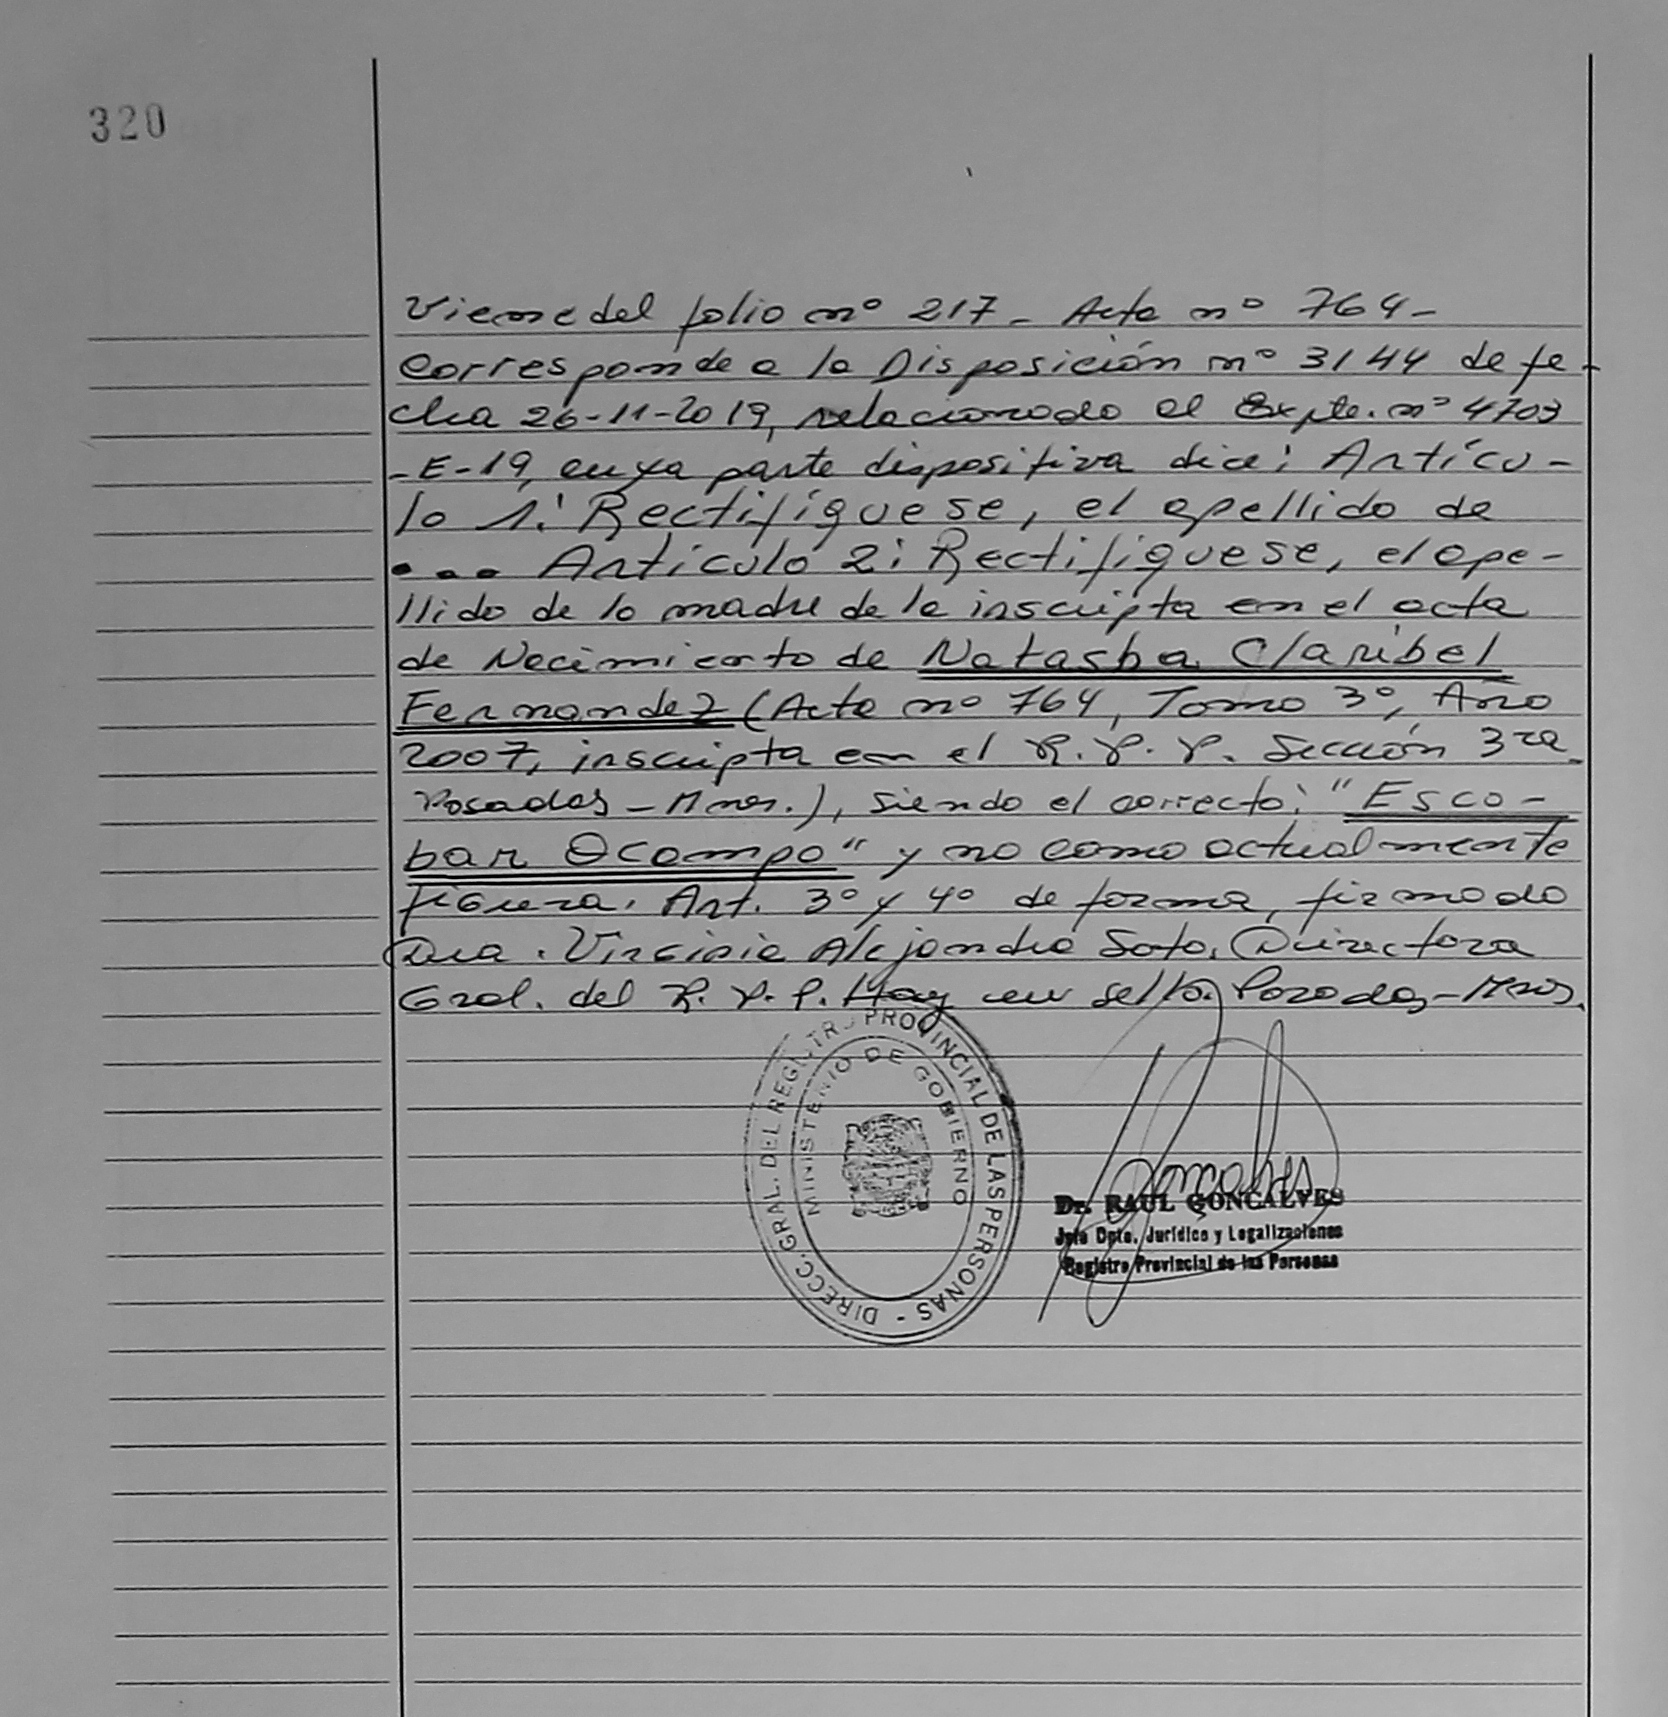 320
Viene del folio nº 217 - Acta nº 764 -
Corresponde a la Disposición nº 3144 de fe-
cha 26-11-2019, relacionado al Expte. nº 4703
-E-19, cuya parte dispositiva dice: Artícu-
lo 1: Rectifíquese, el apellido de
... Artículo 2: Rectifíquese, el ape-
llido de la madre de la inscripta en el acta
de Nacimiento de Natasha Claribel
Fernandez (Acta nº 764, Tomo 3º, Año
2007, inscripta en el R. P. P. Sección 3ra
Posadas - Mnes.), siendo el correcto: "Esco-
bar Ocampo" y no como actualmente
figura. Art. 3º y 4º de forma, firmado
Dra. Virginia Alejandra Soto. Directora
Gral. del R. P. P. Hay un sello. Posadas - Mnes.
DIRECC. GRAL. DEL REGISTRO PROVINCIAL DE LAS PERSONAS -
MINISTERIO DE GOBIERNO
Goncalves
Dr. RAUL GONCALVES
Jefe Dpto. Jurídico y Legalizaciones
Registro Provincial de las Personas